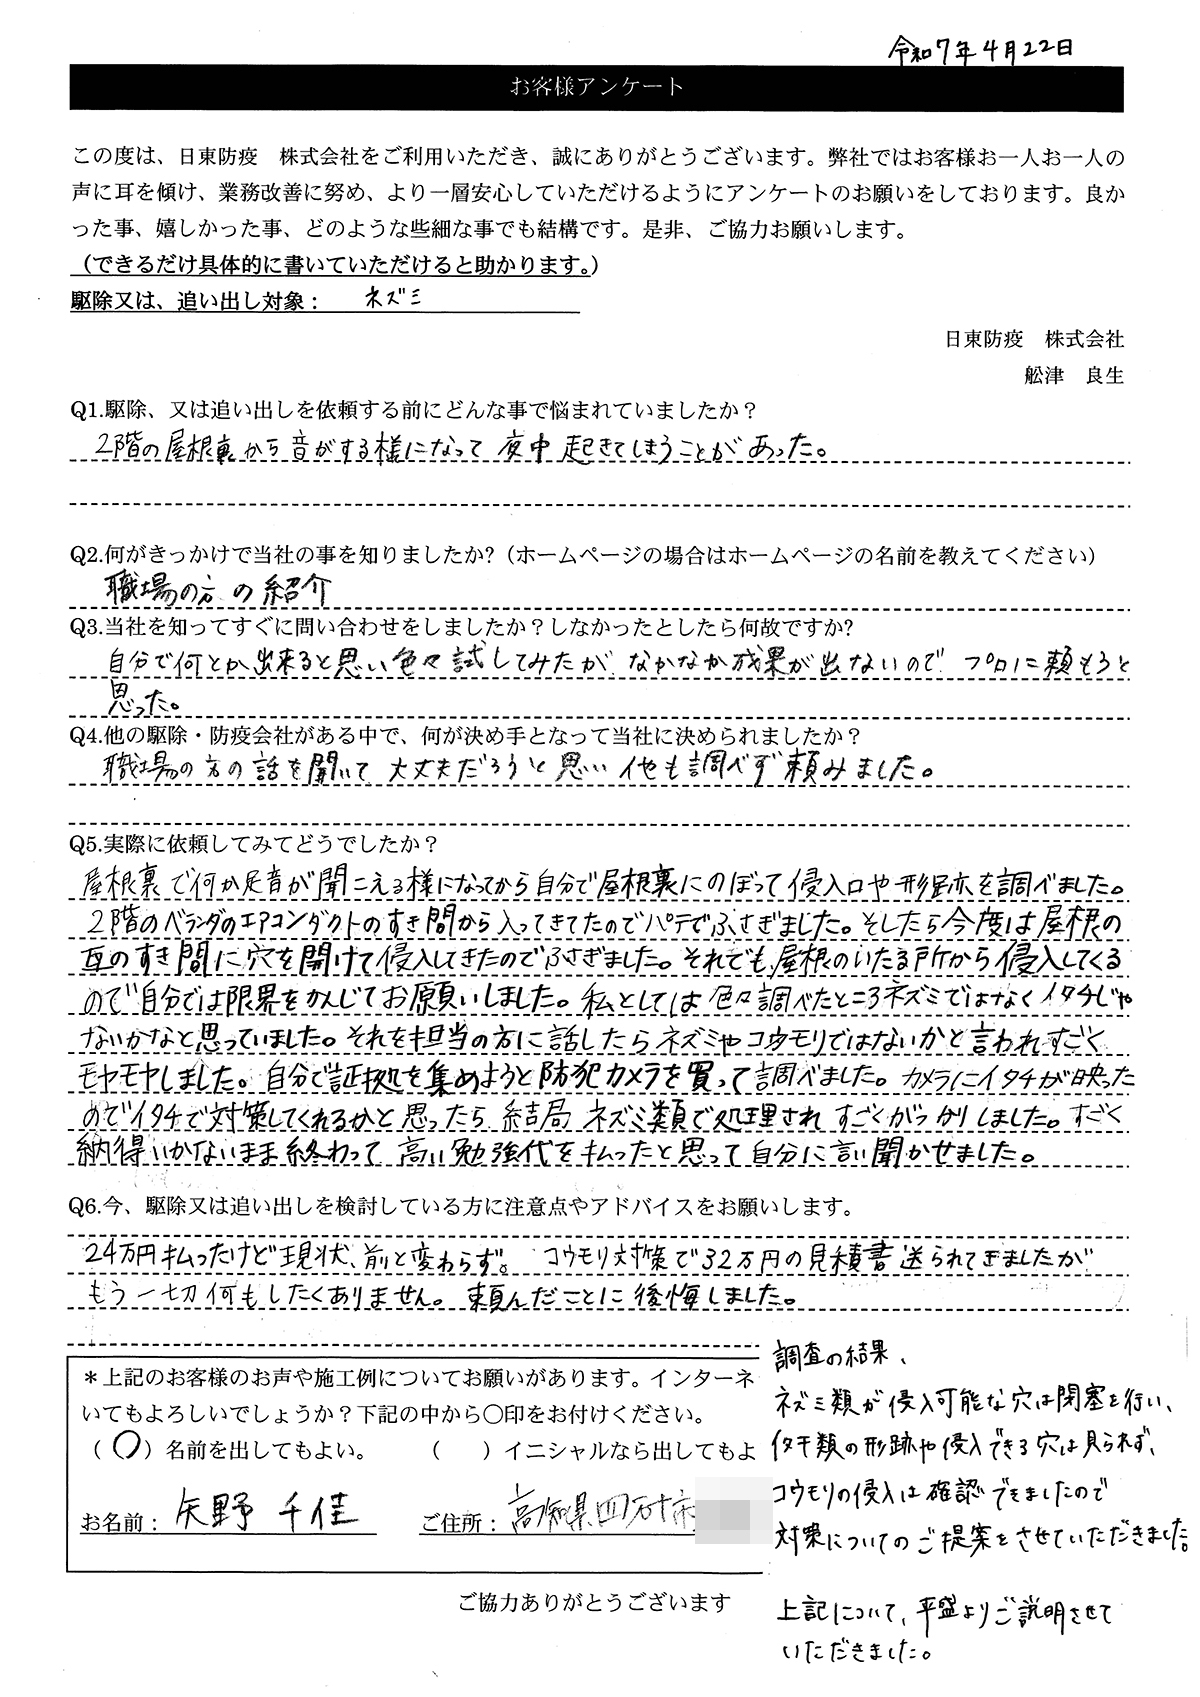 令和7年4月22日
お客様アンケート
この度は、日東防疫　株式会社をご利用いただき、誠にありがとうございます。弊社ではお客様お一人お一人の
声に耳を傾け、業務改善に努め、より一層安心していただけるようにアンケートのお願いをしております。良か
った事、嬉しかった事、どのような些細な事でも結構です。是非、ご協力お願いします。
（できるだけ具体的に書いていただけると助かります。）
駆除又は、追い出し対象：　ネズミ
日東防疫　株式会社
舩津　良生
Q1.駆除、又は追い出しを依頼する前にどんな事で悩まれていましたか？
2階の屋根裏から音がする様になって夜中起きてしまうことがあった。
Q2.何がきっかけで当社の事を知りましたか?（ホームページの場合はホームページの名前を教えてください）
職場の方の紹介
Q3.当社を知ってすぐに問い合わせをしましたか？しなかったとしたら何故ですか?
自分で何とか出来ると思い色々試してみたが、なかなか成果が出ないので、プロに頼もうと
思った。
Q4.他の駆除・防疫会社がある中で、何が決め手となって当社に決められましたか？
職場の方の話を聞いて大丈夫だろうと思い他も調べず頼みました。
Q5.実際に依頼してみてどうでしたか？
屋根裏で何か足音が聞こえる様になってから自分で屋根裏にのぼって侵入口や形跡を調べました。
2階のベランダのエアコンダクトのすき間から入ってきてたのでパテでふさぎました。そしたら今度は屋根の
瓦のすき間に穴を開けて侵入してきたのでふさぎました。それでも、屋根のいたる所から侵入してくる
ので自分では限界をかんじてお願いしました。私としては色々調べたところネズミではなくイタチじゃ
ないかなと思っていました。それを担当の方に話したらネズミやコウモリではないかと言われすごく
モヤモヤしました。自分で証拠を集めようと防犯カメラを買って調べました。カメラにイタチが映った
のでイタチで対策してくれるかと思ったら、結局、ネズミ類で処理されすごくがっかりしました。すごく
納得いかないまま終わって高い勉強代を払ったと思って自分に言い聞かせました。
Q6.今、駆除又は追い出しを検討している方に注意点やアドバイスをお願いします。
24万円払ったけど現状、前と変わらず。コウモリ対策で32万円の見積書送られてきましたが
もう一切何もしたくありません。頼んだことに後悔しました。
＊上記のお客様のお声や施工例についてお願いがあります。インターネ
いてもよろしいでしょうか？下記の中から〇印をお付けください。
（〇）名前を出してもよい。　（　）イニシャルなら出してもよ
お名前：矢野 千佳　ご住所：高知県四万十市
ご協力ありがとうございます
調査の結果、
ネズミ類が侵入可能な穴は閉塞を行い、
イタチ類の形跡や侵入できる穴は見られず、
コウモリの侵入は確認できましたので
対策についてのご提案をさせていただきました。
上記について、平盛よりご説明させて
いただきました。